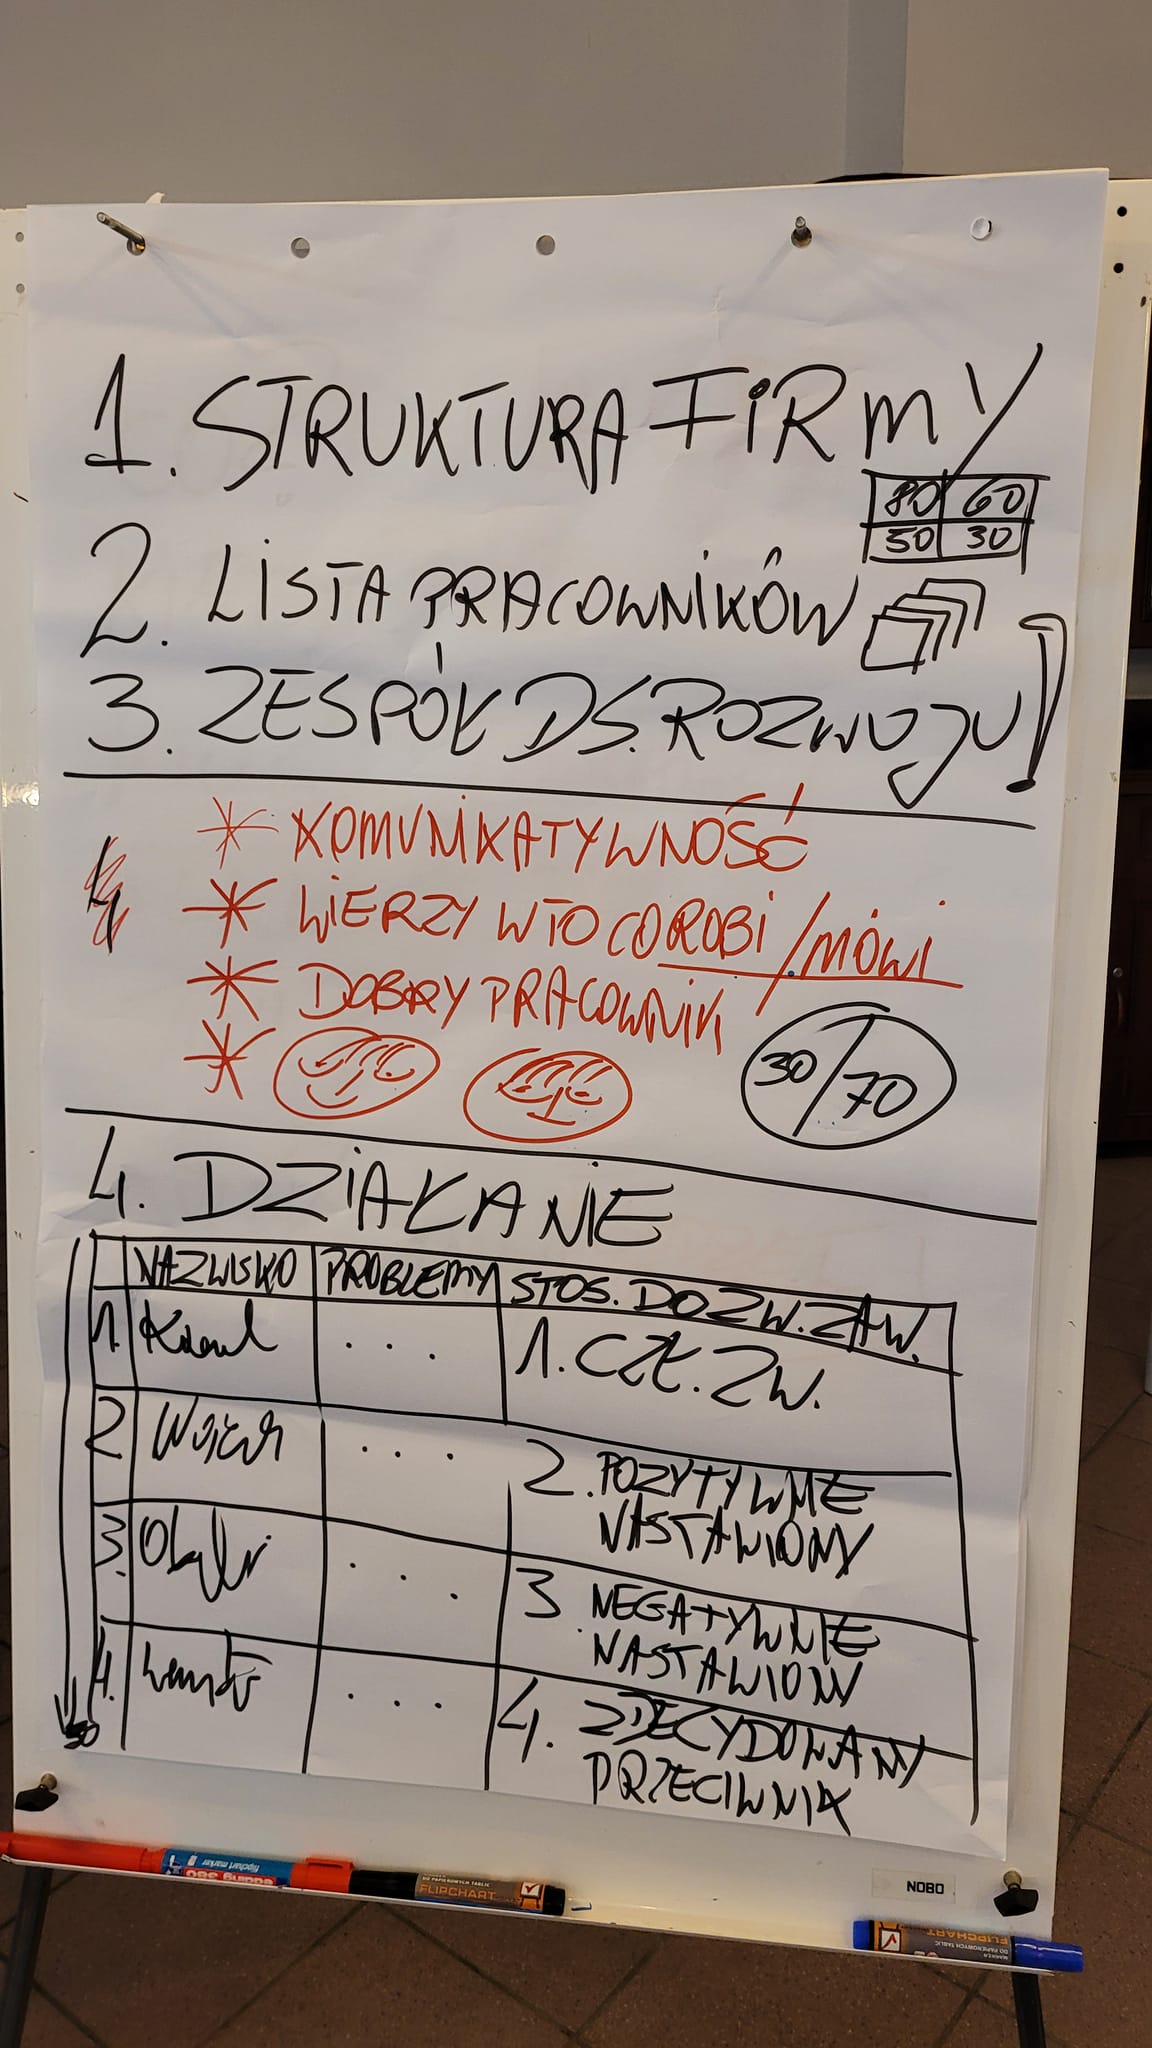 1. STRUKTURA FiRMY
80 60
50 30
2. LiSTA PRACOWNiKÓW
3. ZESPÓŁ DS. ROZWOJU!
* KOMUNiKATYWNOŚĆ
* WIERZY W TO CO ROBi/MÓWi
* DOBRY PRACOWNiK
*
30/70
4. DZiAŁANiE
NAZWISKO PROBLEMY STOS. DO ZW. ZAW.
1. ... 1. CZŁ. ZW.
2 ... 2. POZYTYWNIE
NASTAWIONY
3. ... 3. NEGATYWNIE
NASTAWIONY
4. ... 4. ZDECYDOWANY
PRZECIWNIK
50
flipchart marker
edding 380
FLIPCHART
NOBO
FLIPCHART